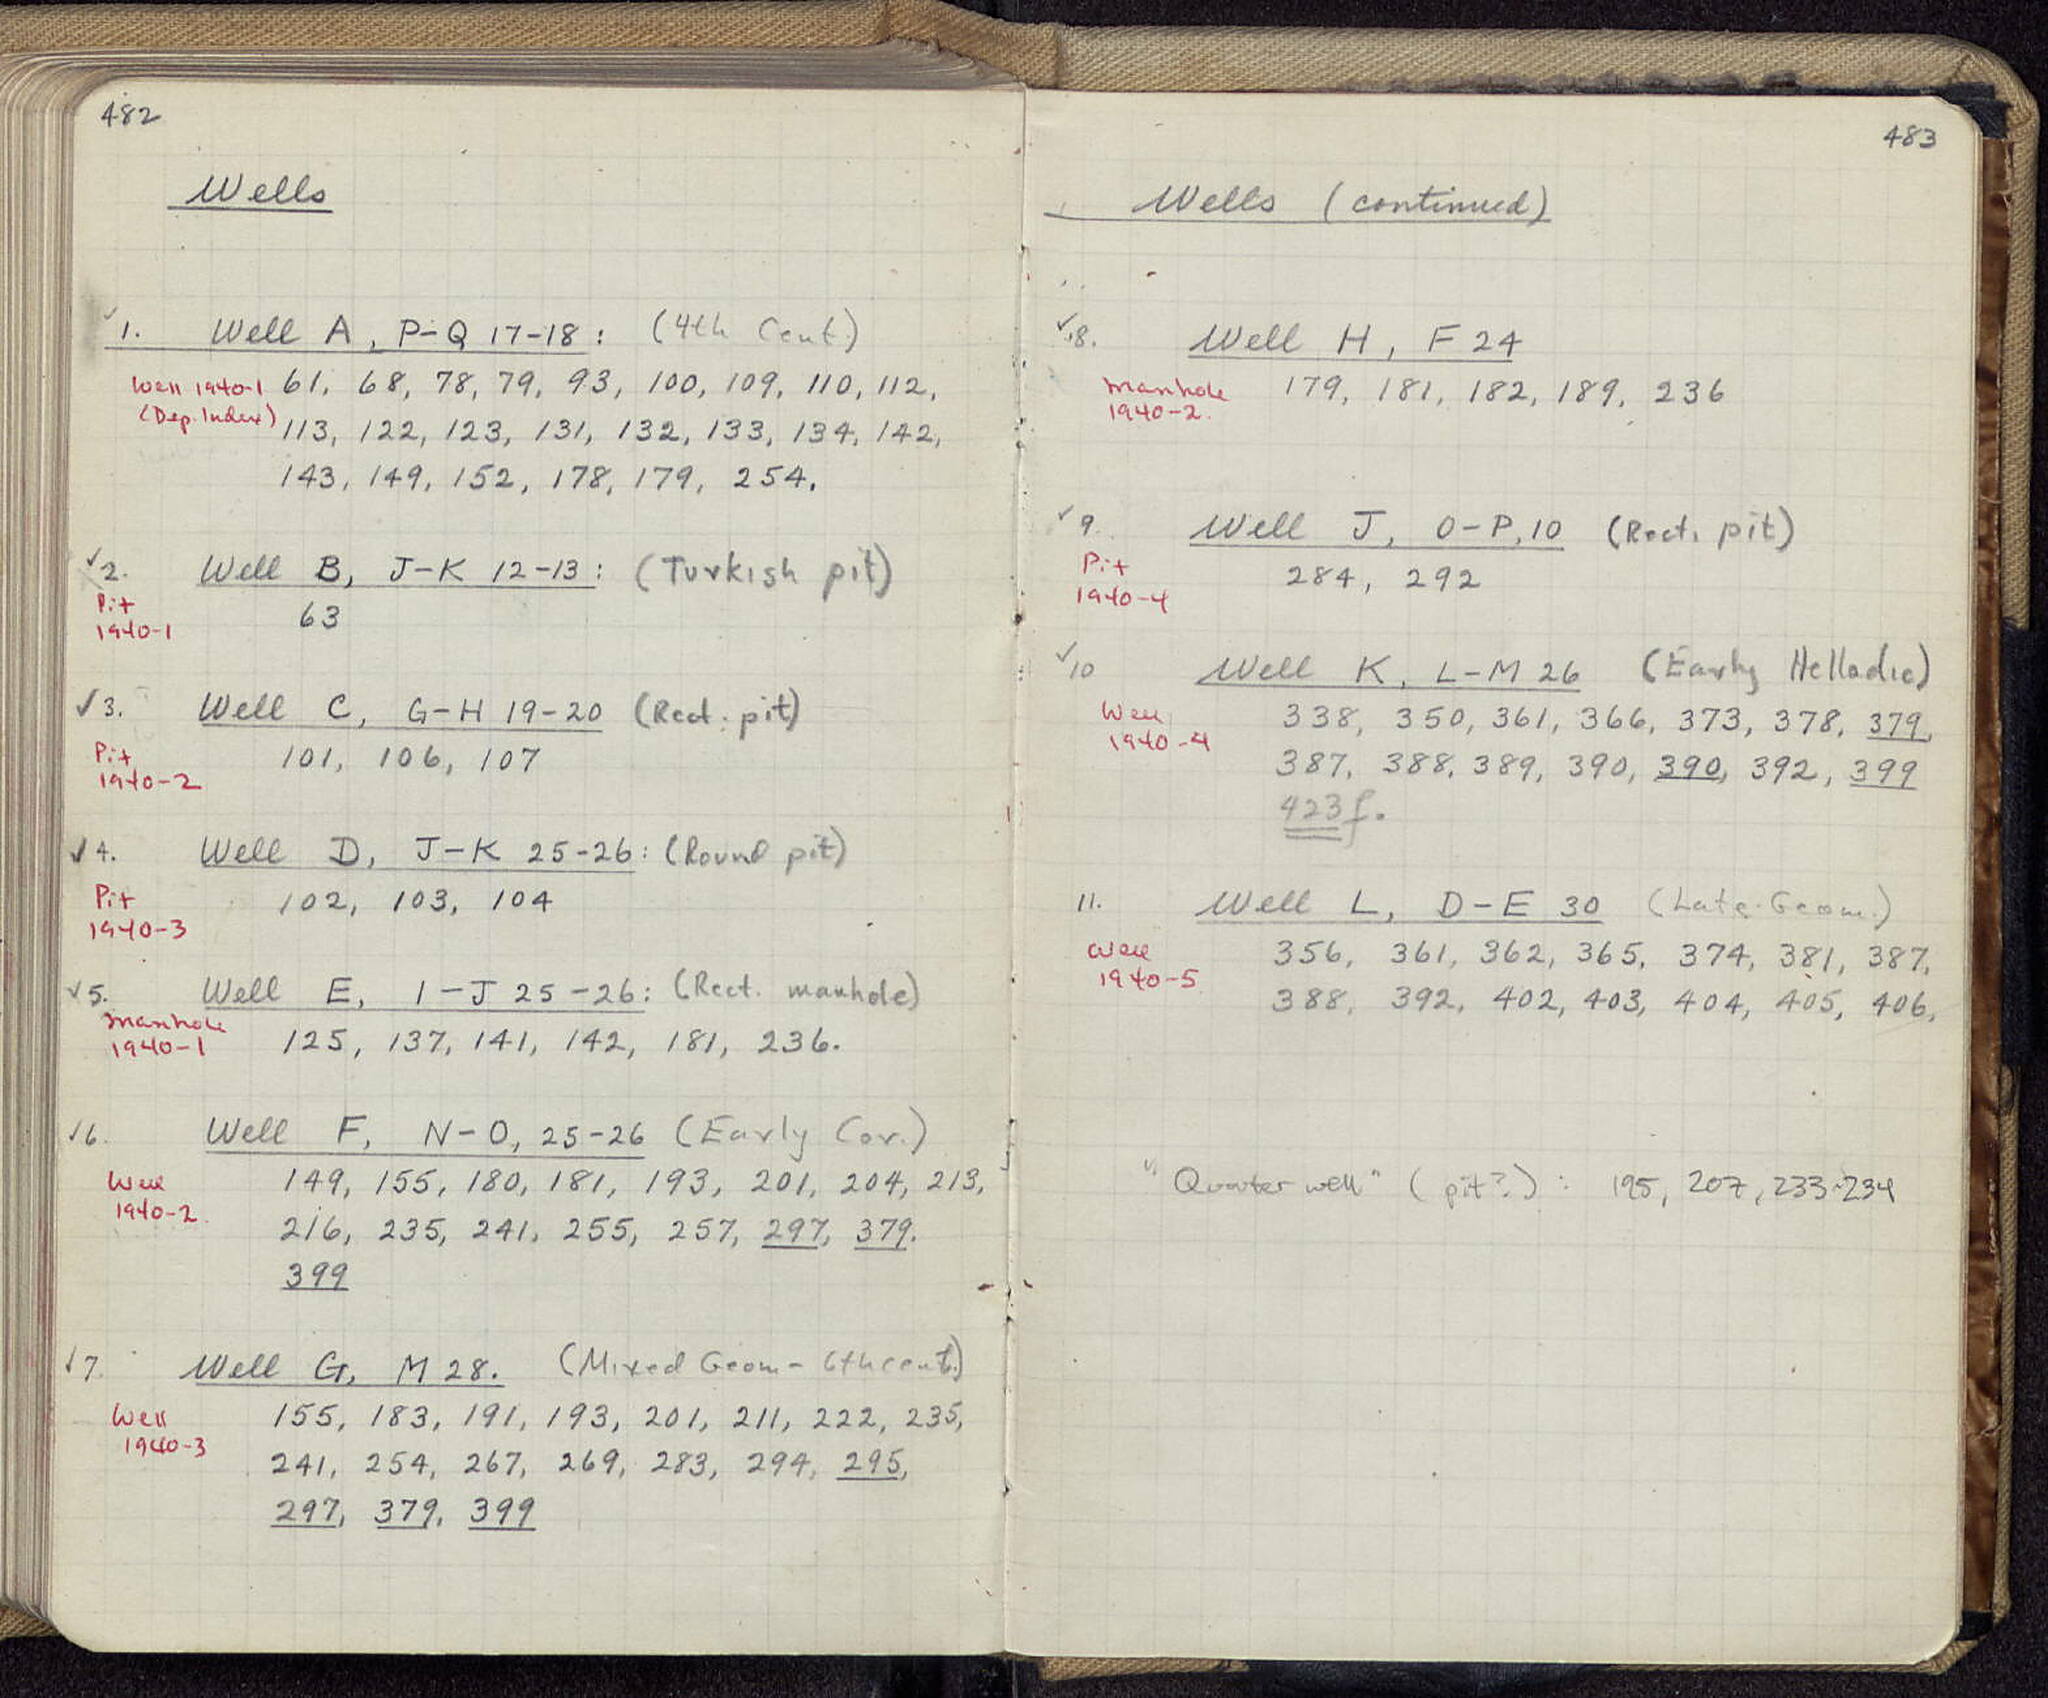 482
Wells
✓1. Well A, P-Q 17-18: (4th Cent.)
Well 1940-1 61, 68, 78, 79, 93, 100, 109, 110, 112,
(Dep. Index) 113, 122, 123, 131, 132, 133, 134, 142,
143, 149, 152, 178, 179, 254.
✓2. Well B, J-K 12-13: (Turkish pit)
Pit
1940-1
63
✓3. Well C, G-H 19-20 (Rect. pit)
Pit
1940-2
101, 106, 107
✓4. Well D, J-K 25-26: (Round pit)
Pit
1940-3
102, 103, 104
✓5. Well E, I-J 25-26: (Rect. manhole)
Manhole
1940-1
125, 137, 141, 142, 181, 236.
✓6. Well F, N-O, 25-26 (Early Cor.)
Well
1940-2
149, 155, 180, 181, 193, 201, 204, 213,
216, 235, 241, 255, 257, 297, 379.
399
✓7. Well G, M 28. (Mixed Geom - 6th cent.)
Well
1940-3
155, 183, 191, 193, 201, 211, 222, 235,
241, 254, 267, 269, 283, 294, 295,
297, 379, 399
483
Wells (continued)
✓8. Well H, F 24
Manhole
1940-2.
179, 181, 182, 189, 236
✓9. Well J, O-P, 10 (Rect. pit)
Pit
1940-4
284, 292
✓10 Well K, L-M 26 (Early Helladic)
Well
1940-4
338, 350, 361, 366, 373, 378, 379,
387, 388, 389, 390, 390, 392, 399
423 f.
11. Well L, D-E 30 (Late Geom.)
Well
1940-5
356, 361, 362, 365, 374, 381, 387,
388, 392, 402, 403, 404, 405, 406,
"Quarter well" (pit?): 195, 207, 233-234